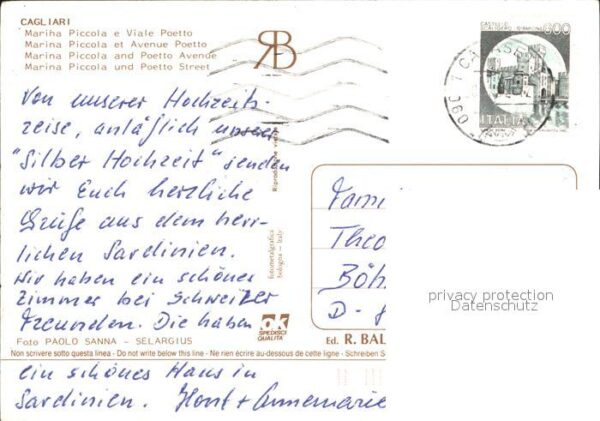 CAGLIARI
Marina Piccola e Viale Poetto
Marina Piccola et Avenue Poetto
Marina Piccola and Poetto Avenue
Marina Piccola und Poetto Street
RB
Von unserer Hochzeits-
reise, anläßlich unserer
"Silber Hochzeit" senden
wir Euch herzliche
Grüße aus dem herr-
lichen Sardinien.
Wir haben ein schönes
Zimmer bei Schweizer
Freunden. Die haben
Foto PAOLO SANNA - SELARGIUS
Non scrivere sotto questa linea - Do not write below this line - Ne rien écrire au-dessous de cette ligne - Schreiben S
ein schönes Haus in
Sardinien. Horst + Annemarie
Riproduzione vietata
fotometalgrafica
bologna - Italy
ok
SPEDISCI
QUALITA
Ed. R. BAL
600
ITALIA
Fami
Theo
Böh
D-
privacy protection
Datenschutz